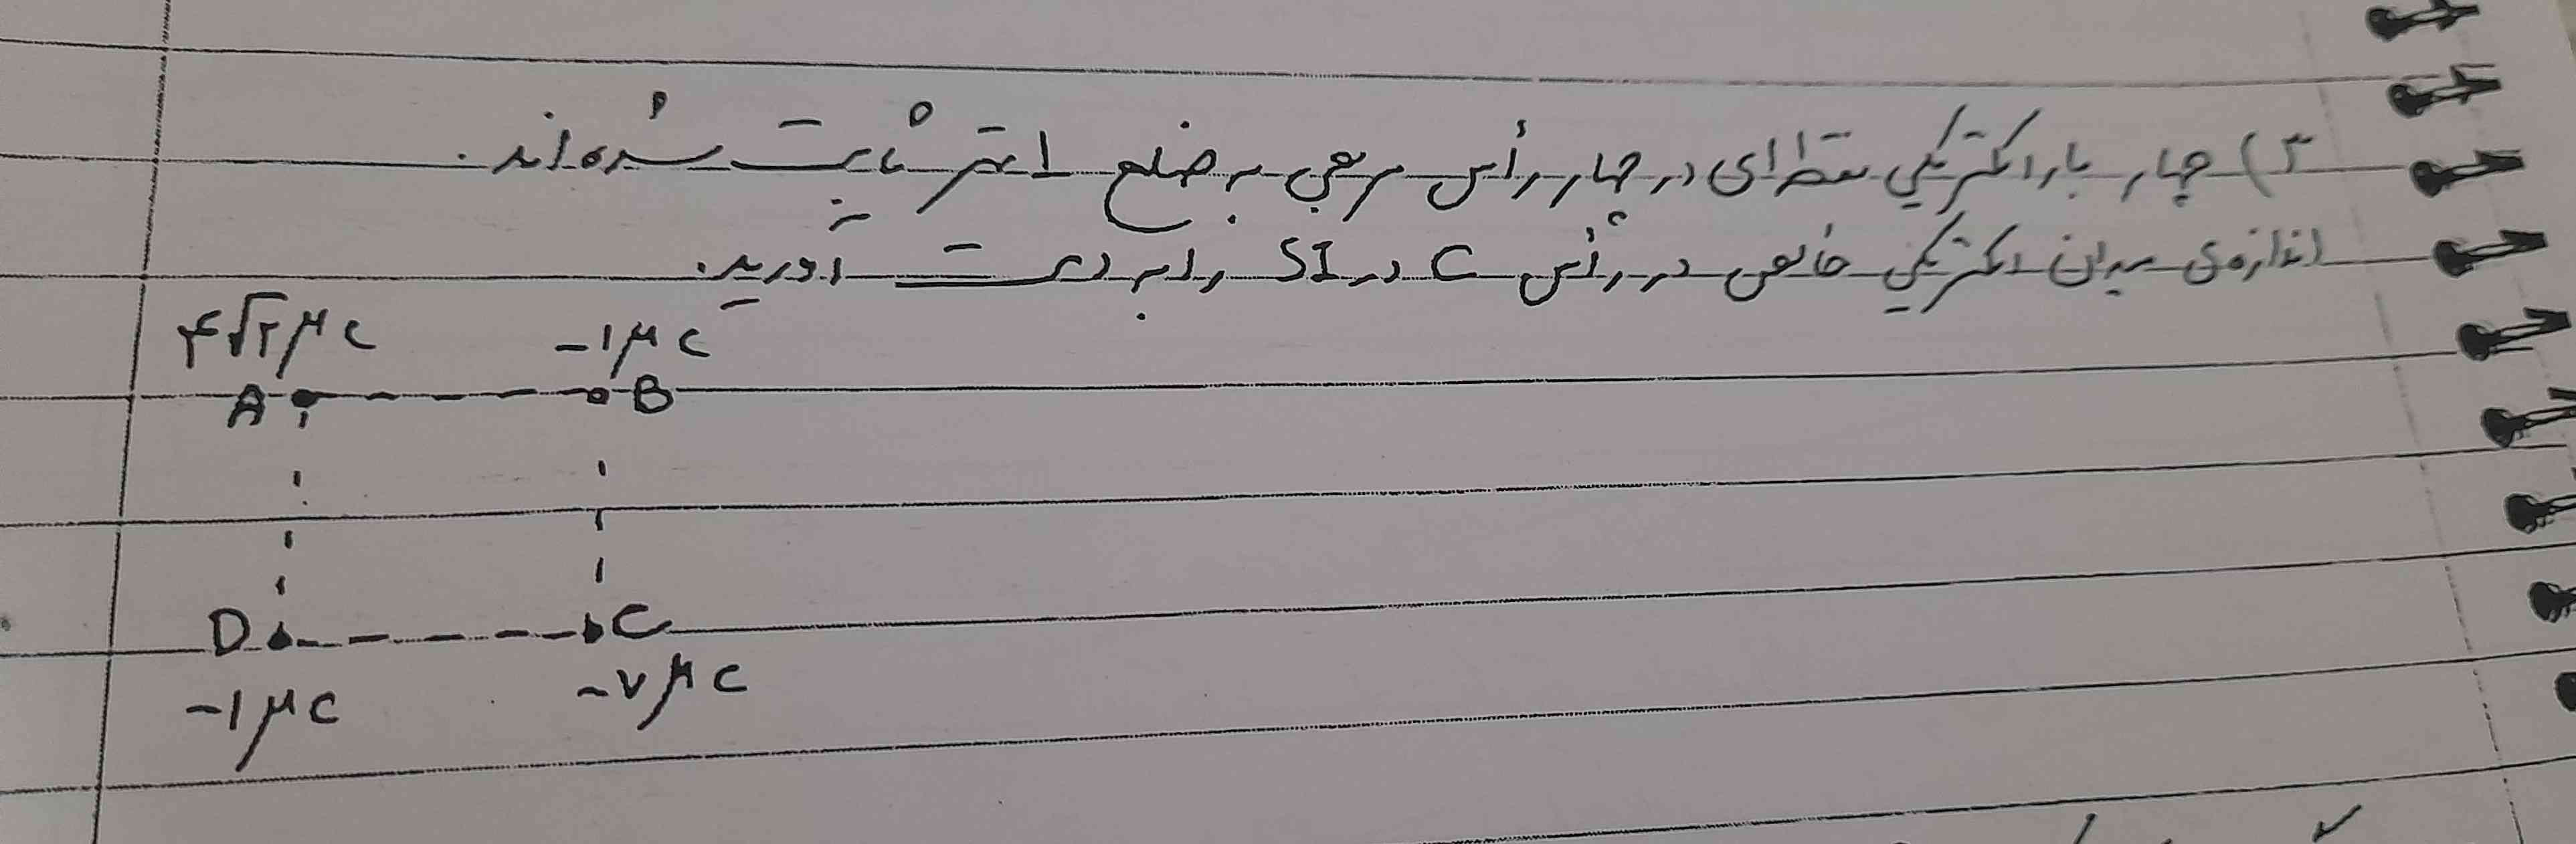 ۳) چهار بار الکتریکی نقطه‌ای در چهار رأس مربعی به ضلع ۱ متر ثابت شده‌اند.
اندازه‌ی میدان الکتریکی خالص در رأس C در SI را به دست آورید.
۴√۲ μC -۱ μC
A B
D C
-۱ μC -۷ μC